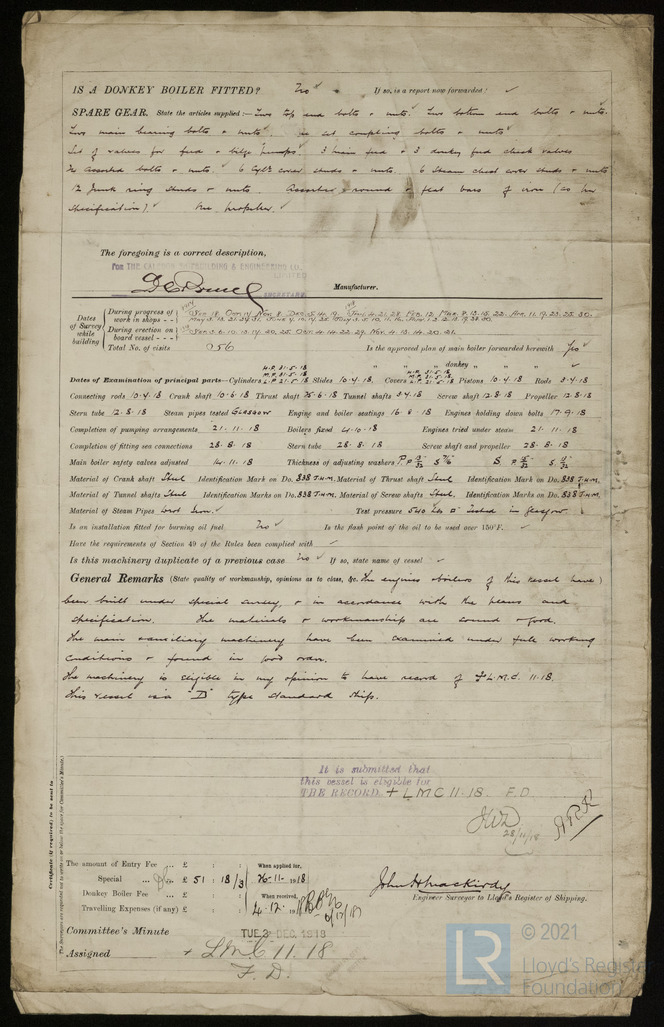 IS A DONKEY BOILER FITTED? No ✓ If so, is a report now forwarded: ✓
SPARE GEAR. State the articles supplied:— Two top end bolts + nuts. Two bottom end bolts + nuts.
Two main bearing bolts + nuts set coupling bolts + nuts
Set of valves for feed + bilge pumps 3 main feed + 3 donkey feed check valves
assorted bolts + nuts. 6 Cylr cover studs + nuts. 6 Steam chest cover studs + nuts
12 Junk ring studs + nuts. Assorted round + flat bars of iron (as per
specification). One propeller.
The foregoing is a correct description,
FOR THE SHIPBUILDING & ENGINEERING CO. LIMITED
SECRETARY Manufacturer.
Dates of Survey while building
During progress of work in shops - -
During erection on board vessel - - -
Total No. of visits 56 Is the approved plan of main boiler forwarded herewith Yes ✓
" " " donkey " " "
H.P. 31.5.18 M.P. 31.5.18
Dates of Examination of principal parts—Cylinders L.P. 31.5.18 Slides 10.4.18. Covers L.P. 31.5.18 Pistons 10.4.18 Rods 3.4.18
Connecting rods 10.4.18 Crank shaft 10.6.18 Thrust shaft 25.6.18 Tunnel shafts 3.4.18 Screw shaft 12.8.18 Propeller 12.8.18
Stern tube 12.8.18 Steam pipes tested Glasgow Engine and boiler seatings 16.8.18 Engines holding down bolts 17.9.18
Completion of pumping arrangements 21.11.18 Boilers fixed 4.10.18 Engines tried under steam 21.11.18
Completion of fitting sea connections 28.8.18 Stern tube 28.8.18 Screw shaft and propeller 28.8.18
Main boiler safety valves adjusted 14.11.18 Thickness of adjusting washers
Material of Crank shaft Steel Identification Mark on Do. 838 J.H.M. Material of Thrust shaft Steel Identification Mark on Do. 838 J.H.M.
Material of Tunnel shafts Steel Identification Marks on Do. 838 J.H.M. Material of Screw shafts Steel. Identification Marks on Do. 838 J.H.M.
Material of Steam Pipes Wrot Iron. ✓ Test pressure 540 lbs □" Tested in Glasgow.
Is an installation fitted for burning oil fuel No ✓ Is the flash point of the oil to be used over 150°F. ✓
Have the requirements of Section 49 of the Rules been complied with ✓
Is this machinery duplicate of a previous case No ✓ If so, state name of vessel ✓
General Remarks (State quality of workmanship, opinions as to class, &c. The engines + boilers of this vessel have)
been built under special survey, + in accordance with the plans and
specification. The materials + workmanship are sound + good.
The main + auxiliary machinery have been examined under full working
conditions + found in good order.
The machinery is eligible in my opinion to have record of + L.M.C. 11.18.
This vessel is a "D" type standard ship.
It is submitted that
this vessel is eligible for
THE RECORD + LMC 11.18. F.D.
JWD 28/11/18
Certificate (if required) to be sent to
The Surveyors are requested not to write on or below the space for Committee's Minute.
The amount of Entry Fee ... £ : : When applied for,
Special ... £ 51 : 18/3 26.11.1918
Donkey Boiler Fee ... £ : : When received,
Travelling Expenses (if any) £ : : 4.12.1918
John H Mackirdy
Engineer Surveyor to Lloyd's Register of Shipping.
Committee's Minute TUE. 3 DEC. 1918
Assigned + L.M.C 11.18
F.D.
LR © 2021
Lloyd's Register
Foundation